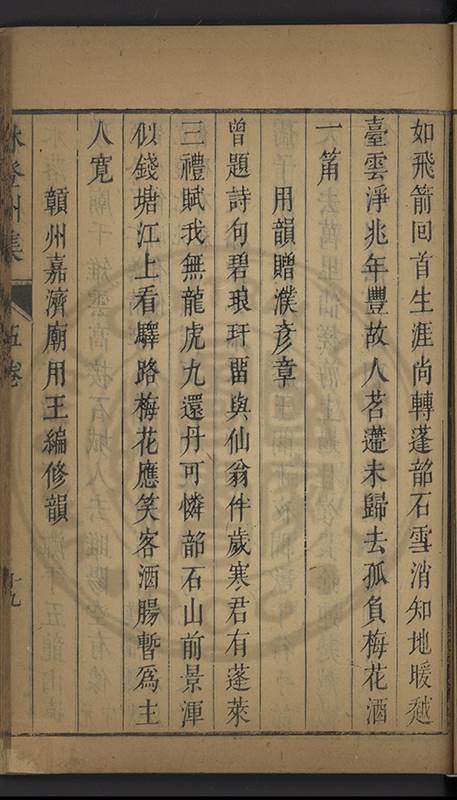 如飛箭回首生涯尚轉蓬韶石雪消知地暖越
臺雲淨兆年豐故人苕遰未歸去孤負梅花酒
一篘
用韻贈濮彥章
曾題詩句碧琅玕畱與仙翁伴歲寒君有蓬萊
三禮賦我無龍虎九還丹可憐韶石山前景渾
似錢塘江上看驛路梅花應笑客酒腸暫爲主
人寬
贑州嘉濟廟用王編修韻
登州集
五卷
十九